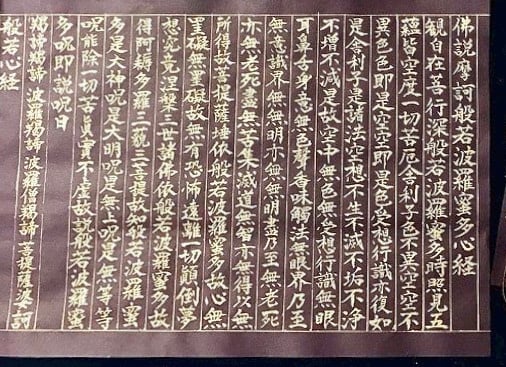 佛説摩訶般若波羅蜜多心経
観自在菩薩行深般若波羅蜜多時照見五
蘊皆空度一切苦厄舎利子色不異空空不
異色色即是空空即是色受想行識亦復如
是舎利子是諸法空想不生不滅不垢不浄
不増不減是故空中無色無受想行識無眼
耳鼻舌身意無色聲香味觸法無眼界乃至
無意識界無無明亦無無明盡乃至無老死
亦無老死盡無苦集滅道無智亦無得以無
所得故菩提薩埵依般若波羅蜜多故心無
罣礙無罣礙故無有恐怖遠離一切顛倒夢
想究竟涅槃三世諸佛依般若波羅蜜多故
得阿耨多羅三藐三菩提故知般若波羅蜜
多是大神呪是大明呪是無上呪是無等等
呪能除一切苦眞實不虚故説般若波羅蜜
多呪即説呪曰
羯諦羯諦 波羅羯諦 波羅僧羯諦 菩提薩婆訶
般若心経